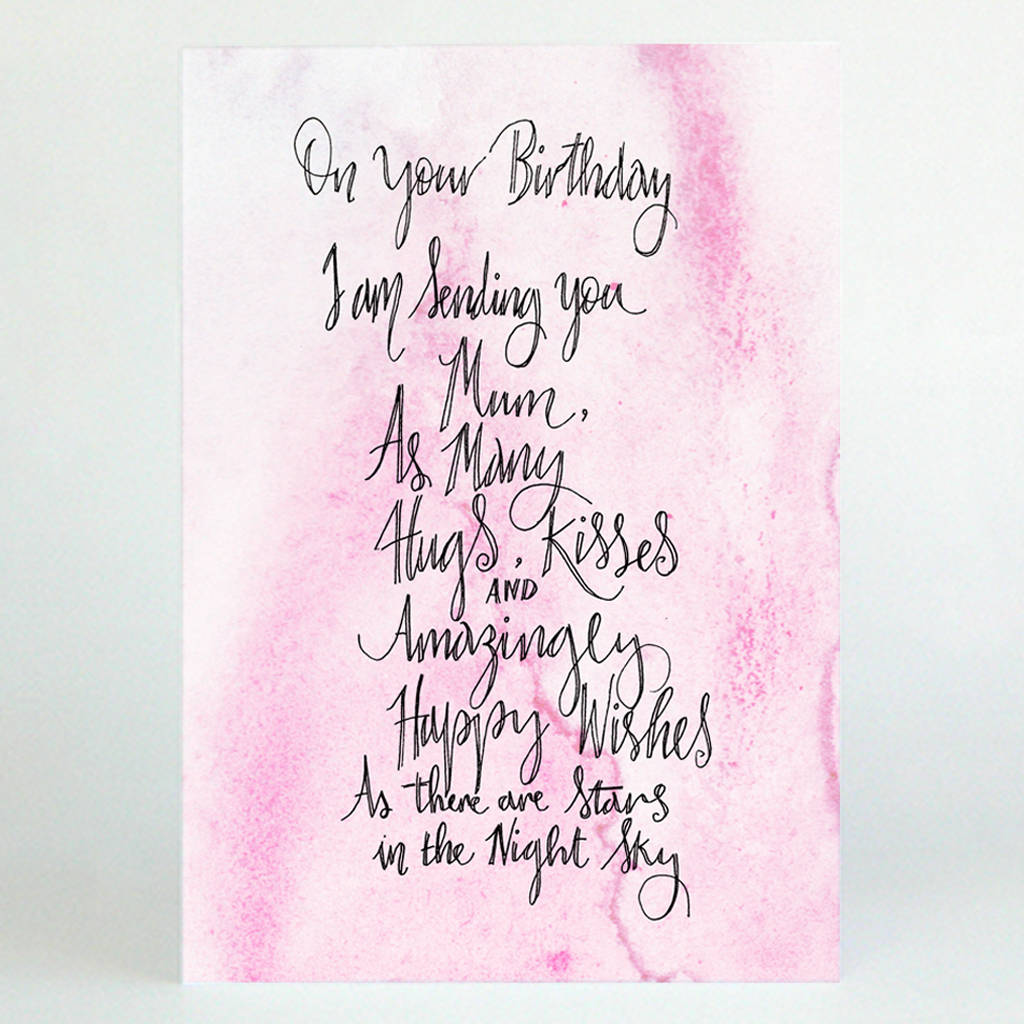 On Your Birthday
I am Sending you
Mum,
As Many
Hugs, Kisses
AND
Amazingly
Happy Wishes
As there are Stars
in the Night Sky